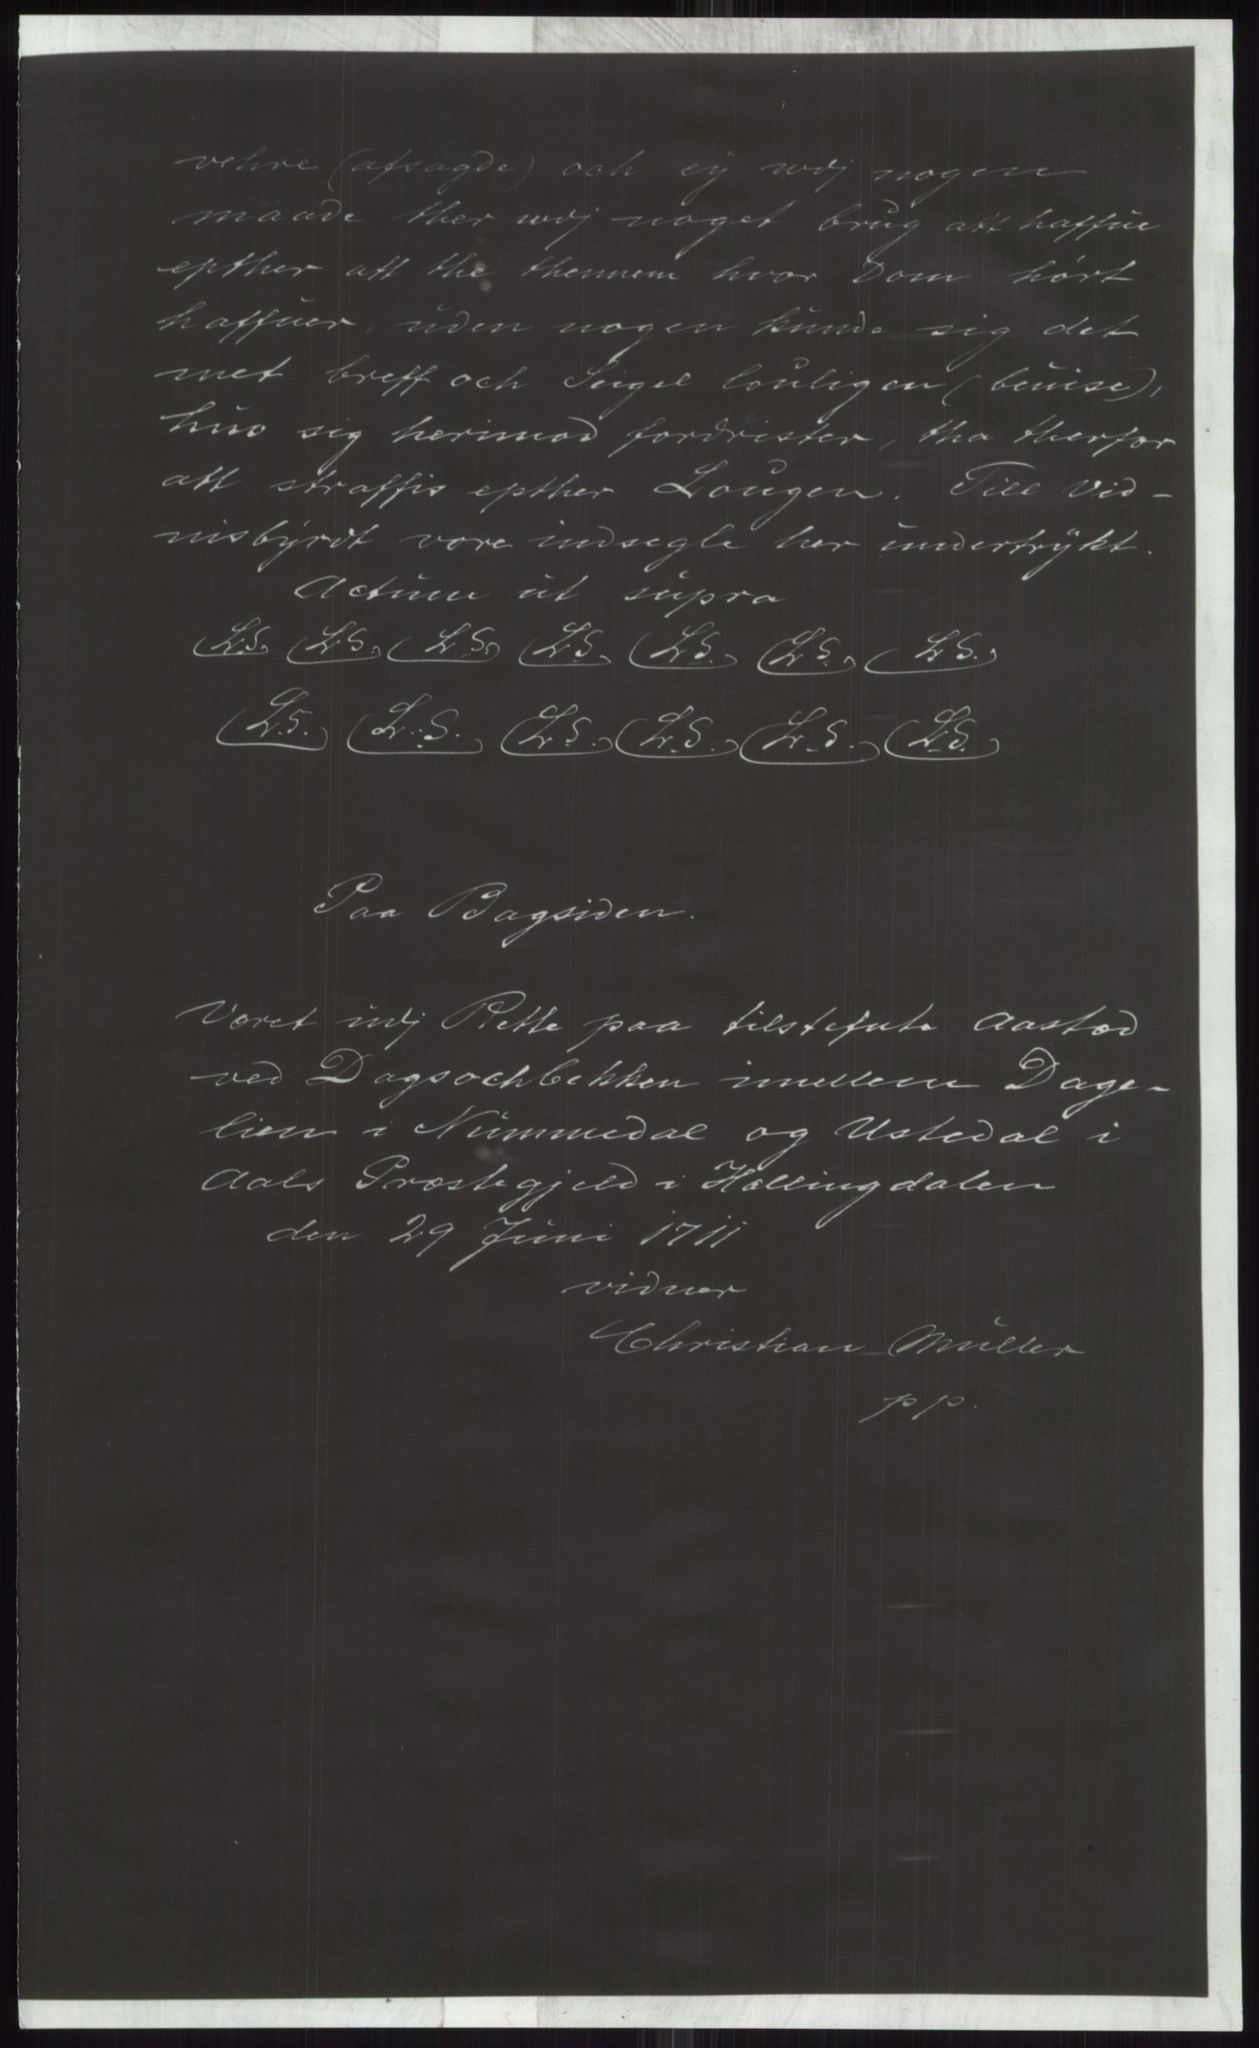 vehre (afsagde) och eÿ udj nogen
maade ther udj noget brug att haffue
epther att the thennem hvor Dom hört
haffuer, uden nogen kunde sig det
met breff och Seigel louligen (beuise),
huo sig herimod fordrister, tha therfor
att straffis epther Lougen. Till Vid-
nisbÿrdt vore indsegle her undertrÿkt.
Actum ut supra
L.S. L.S. L.S. L.S. L.S. L.S. L.S.
L.S. L.S. L.S. L.S. L.S. L.S.
Paa Bagsiden.
Været udj Rette paa tilstefnte Aastæd
ved Dagsochbekken imellem Dage-
lien i Nummedal og Ustedal i
Aals Præstegjeld i Hallingdalen
den 29 Juni 1711
vidner
Christian Müller
pp.